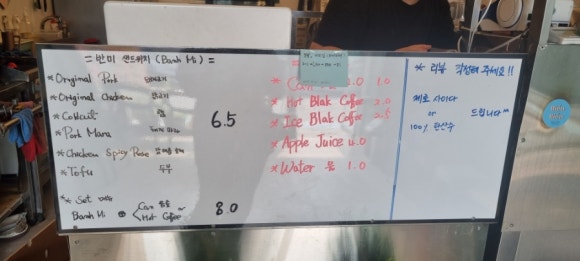 = 반미 샌드위치 (Banh Mi) =
* Original Pork 돼지고기
* Original Chicken 닭고기
* Coldcut 햄
* Pork Mara
* Chicken Spicy
* Tofu 두부
6.5
* Set 메뉴
Banh Mi Can 음료 or Hot Coffee
8.0
* Can 1.0
* Hot Blak Coffee 2.0
* Ice Blak Coffee 2.5
* Apple Juice 4.0
* Water 물 1.0
* 리뷰 작성해 주세요!!
제로 사이다
or 드립니다^^
100% 탄산수